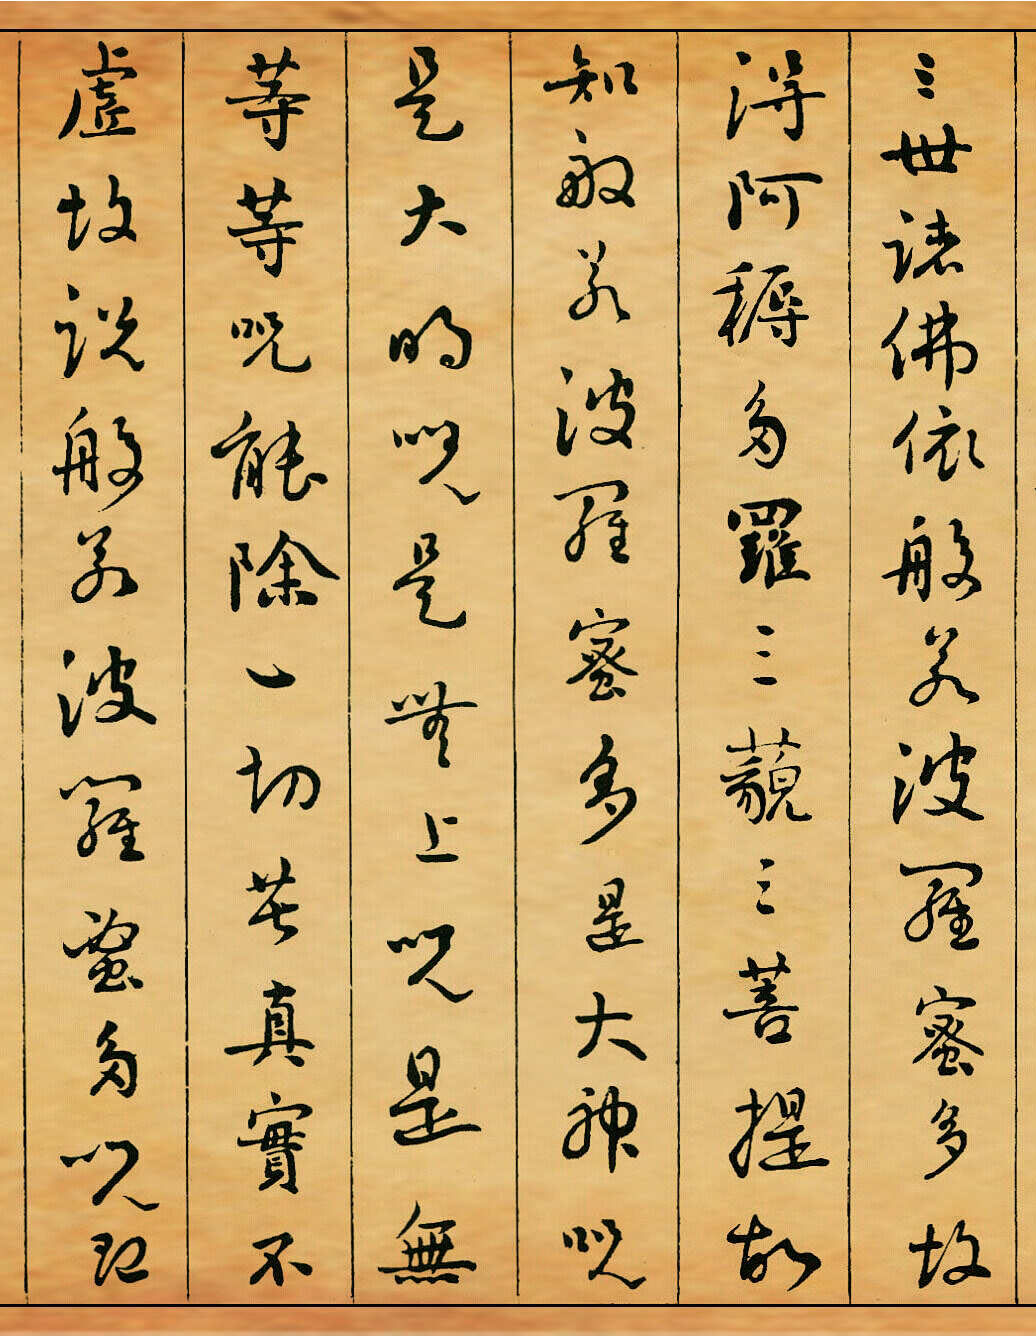 三世諸佛依般若波羅蜜多故
得阿耨多羅三藐三菩提故
知般若波羅蜜多是大神呪
是大明呪是無上呪是無
等等呪能除一切苦真實不
虛故說般若波羅蜜多呪即